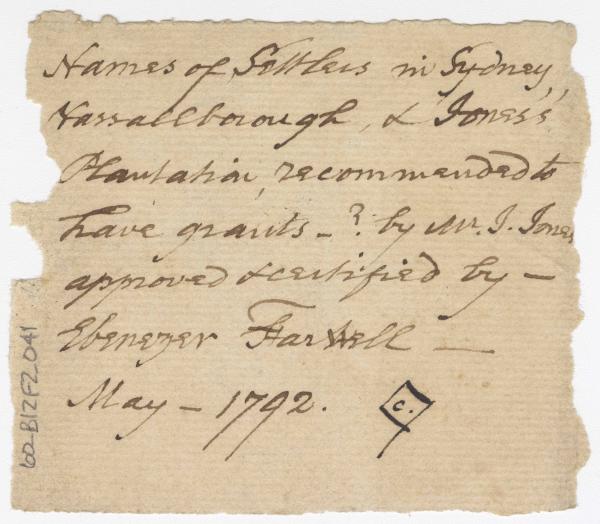 Names of Settlers in Sydney,
Vassallborough, & Jones's
Plantation, recommended to
have grants - ? by Mr. J. Jones
approved & certified by —
Ebenezer Farwell —
May - 1792. c.
60-B12F2_041